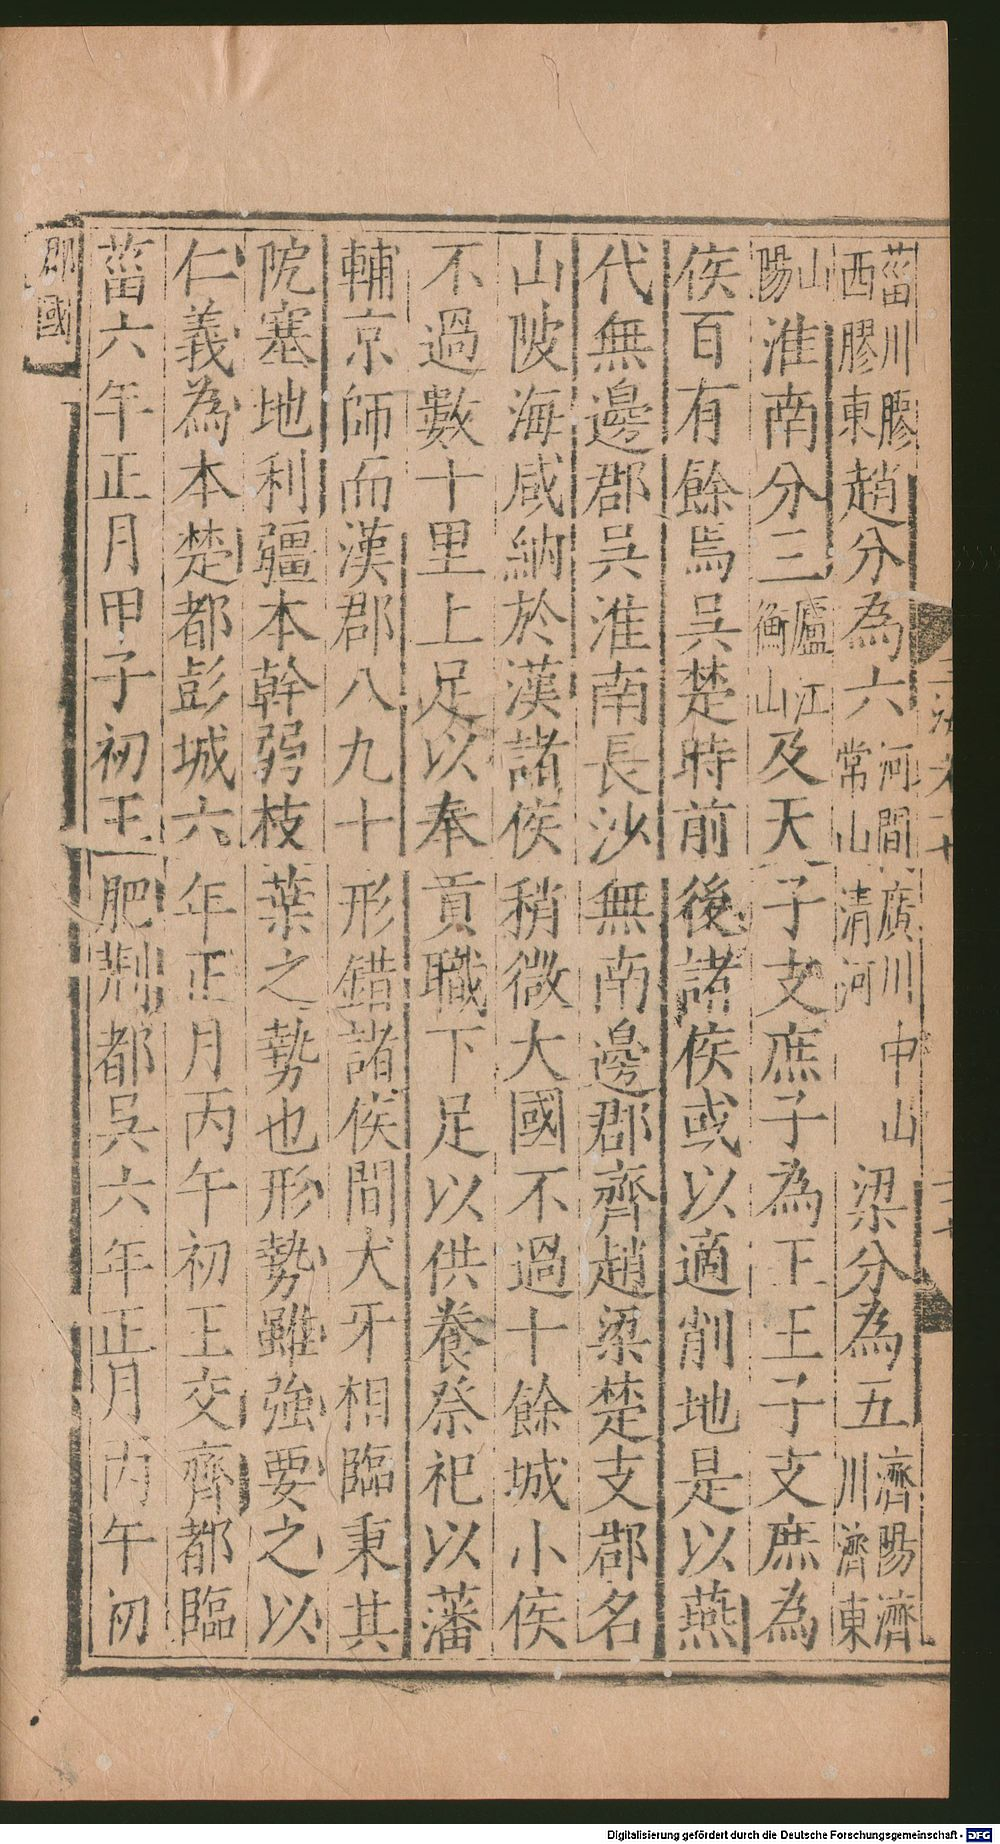 菑川膠西膠東趙分為六河間廣川中山常山清河梁分為五濟陽濟川濟東
山陽淮南分三廬江衡山及天子支庶子為王王子支庶為
侯百有餘焉吳楚時前後諸侯或以適削地是以燕
代無邊郡吳淮南長沙無南邊郡齊趙梁楚支郡名
山陂海咸納於漢諸侯稍微大國不過十餘城小侯
不過數十里上足以奉貢職下足以供養祭祀以藩
輔京師而漢郡八九十形錯諸侯間犬牙相臨秉其
阸塞地利疆本幹弱枝葉之勢也形勢雖強要之以
仁義為本楚都彭城六年正月丙午初王交齊都臨
菑六年正月甲子初王肥荆都吳六年正月丙午初
郡國
Digitalisierung gefördert durch die Deutsche Forschungsgemeinschaft - DFG